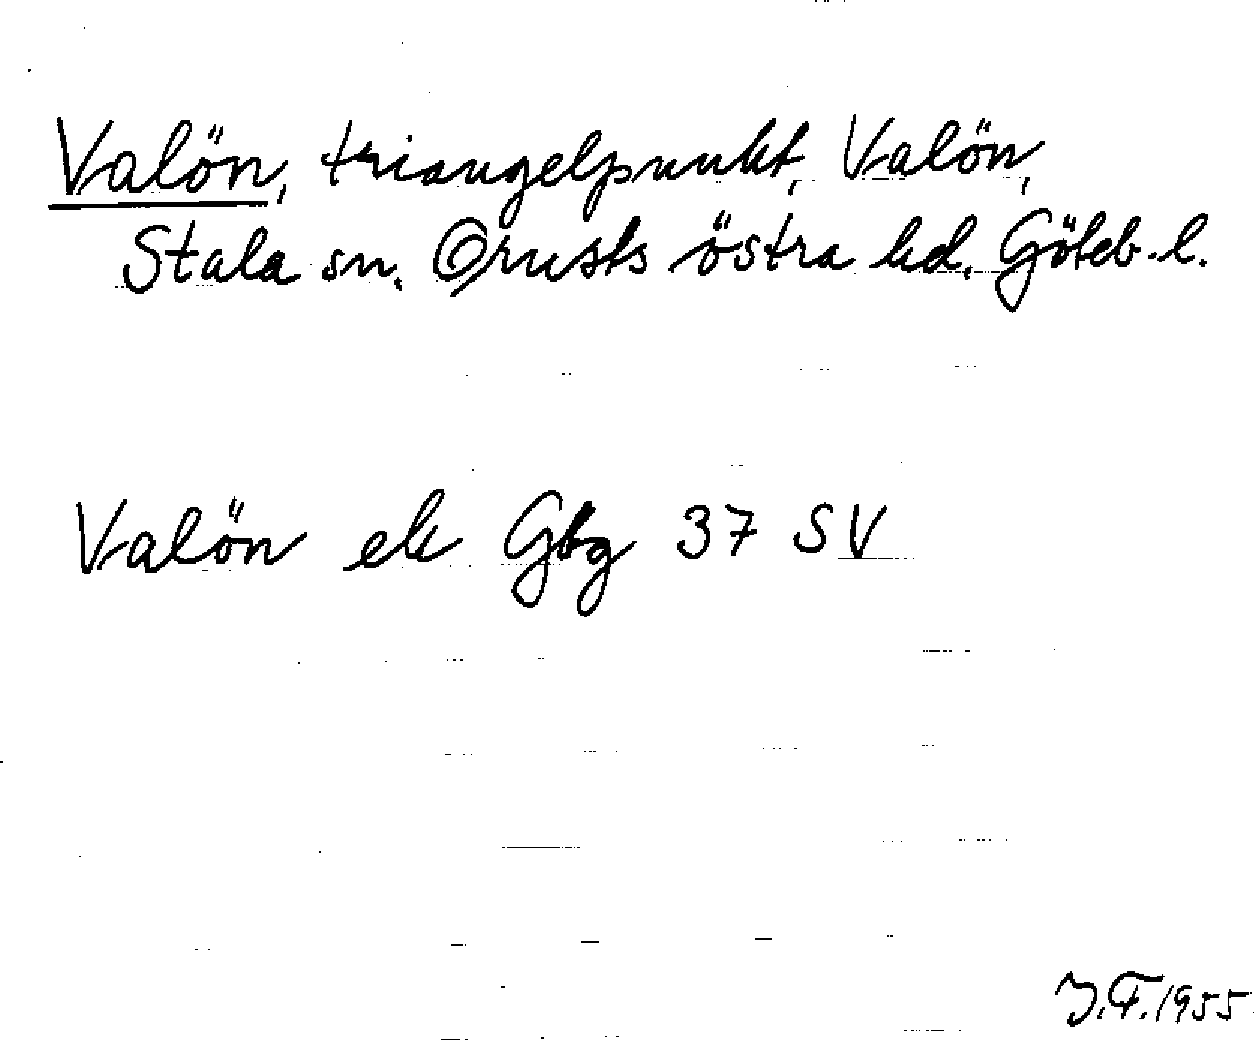 Valön, triangelpunkt, Valön,
Stala sn. Orusts östra hd. Göteb. l.
Valön ek Gbg 37 SV
J.F. 1955